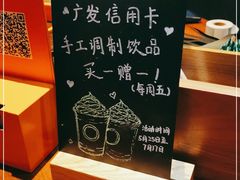 广发信用卡
手工调制饮品
买一赠一!
(每周五)
活动时间
5月25日至
7月17日